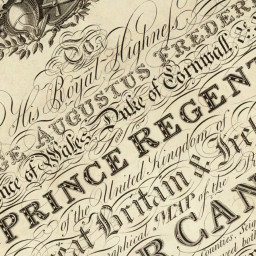 To
His Royal Highness
AUGUSTUS FREDER
nce of Wales, Duke of Cornwall
PRINCE REGENT
of the United Kingdom of
at Britain & Irel
graphical MAP of the
R CAN